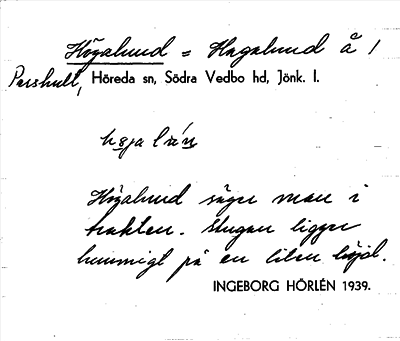 Högalund = Hagalund å 1
Parshult, Höreda sn, Södra Vedbo hd, Jönk. l.
Högalund säger man i
trakten. Stugan ligger
hemmigt på en liten höjd.
INGEBORG HÖRLÉN 1939.